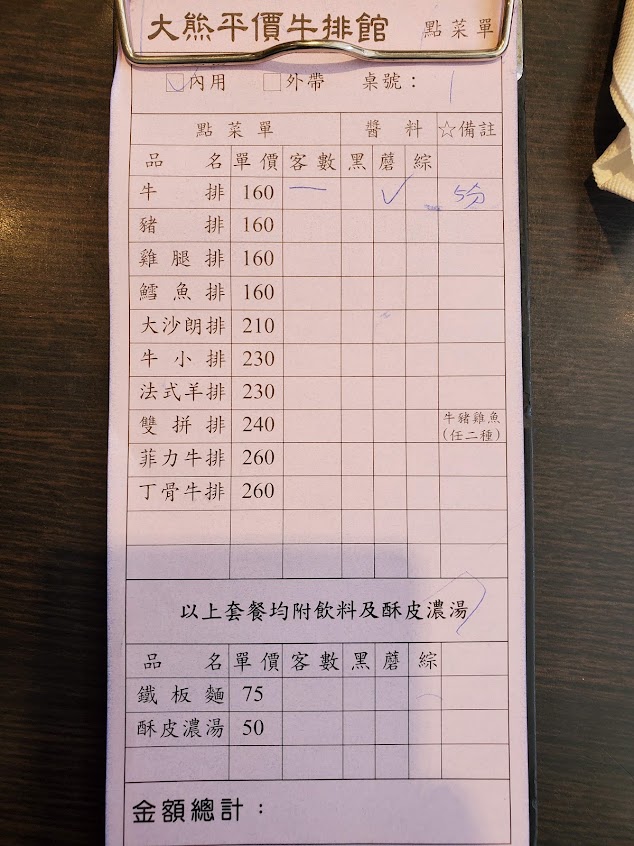 大熊平價牛排館 點菜單
內用 外帶 桌號： 1
點菜單 醬料 ☆備註
品名 單價 客數 黑 蘑 綜
牛排 160 一 ✓ 5分
豬排 160
雞腿排 160
鱈魚排 160
大沙朗排 210
牛小排 230
法式羊排 230
雙拼排 240 牛豬雞魚
(任二種)
菲力牛排 260
丁骨牛排 260
以上套餐均附飲料及酥皮濃湯
品名 單價 客數 黑 蘑 綜
鐵板麵 75
酥皮濃湯 50
金額總計：